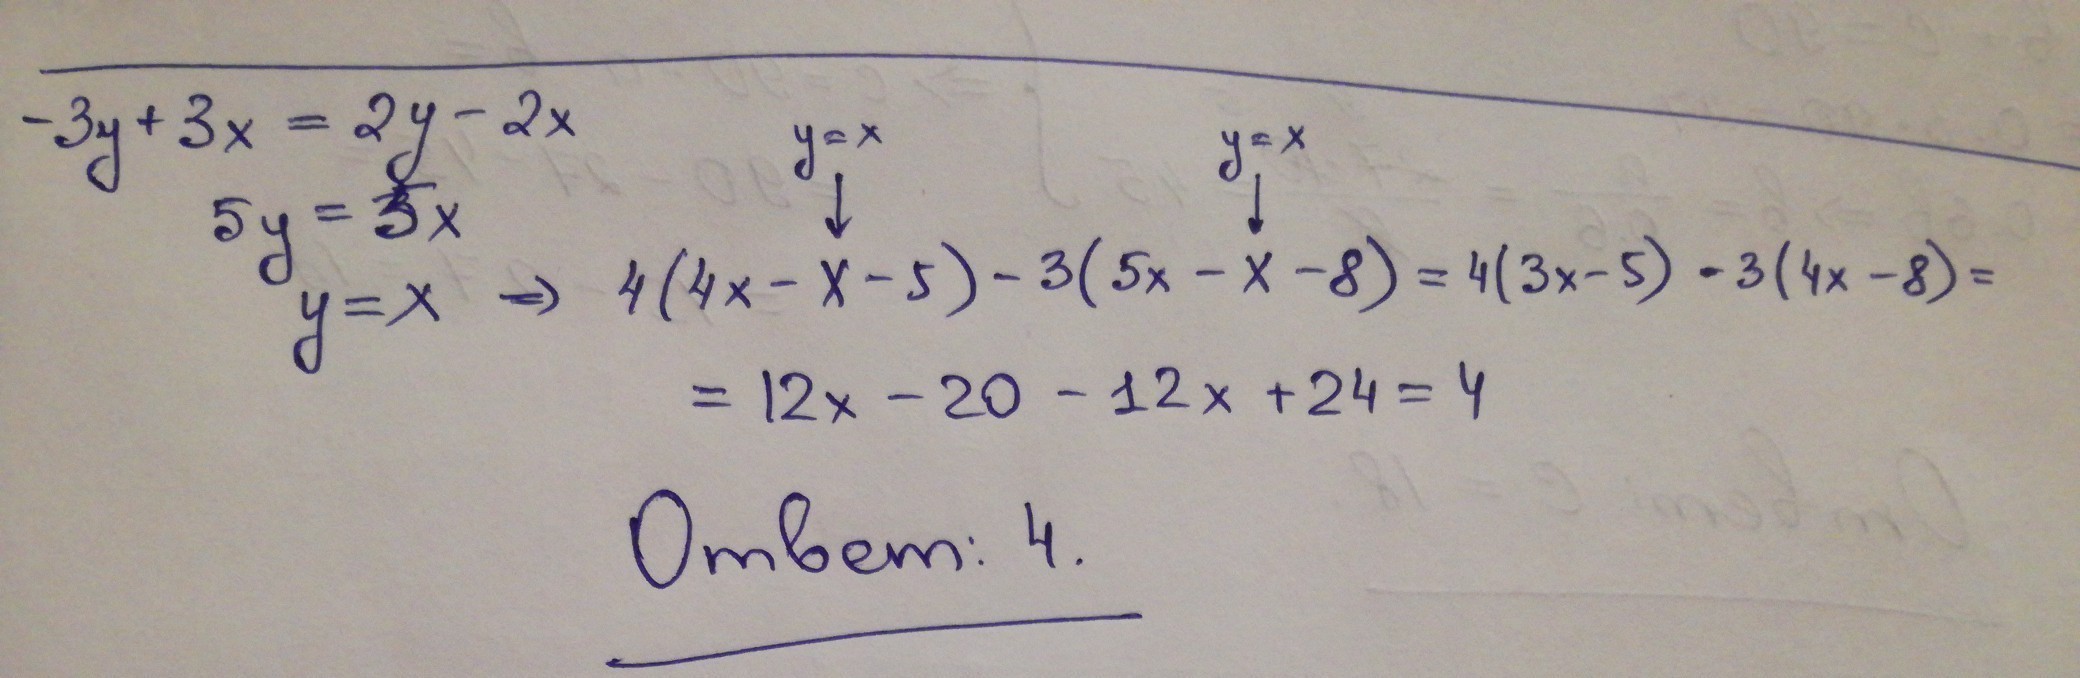 -3y + 3x = 2y - 2x
5y = 5x
y = x y = x
y = x ⇒ 4(4x - x - 5) - 3(5x - x - 8) = 4(3x - 5) - 3(4x - 8) =
= 12x - 20 - 12x + 24 = 4
Ответ: 4.